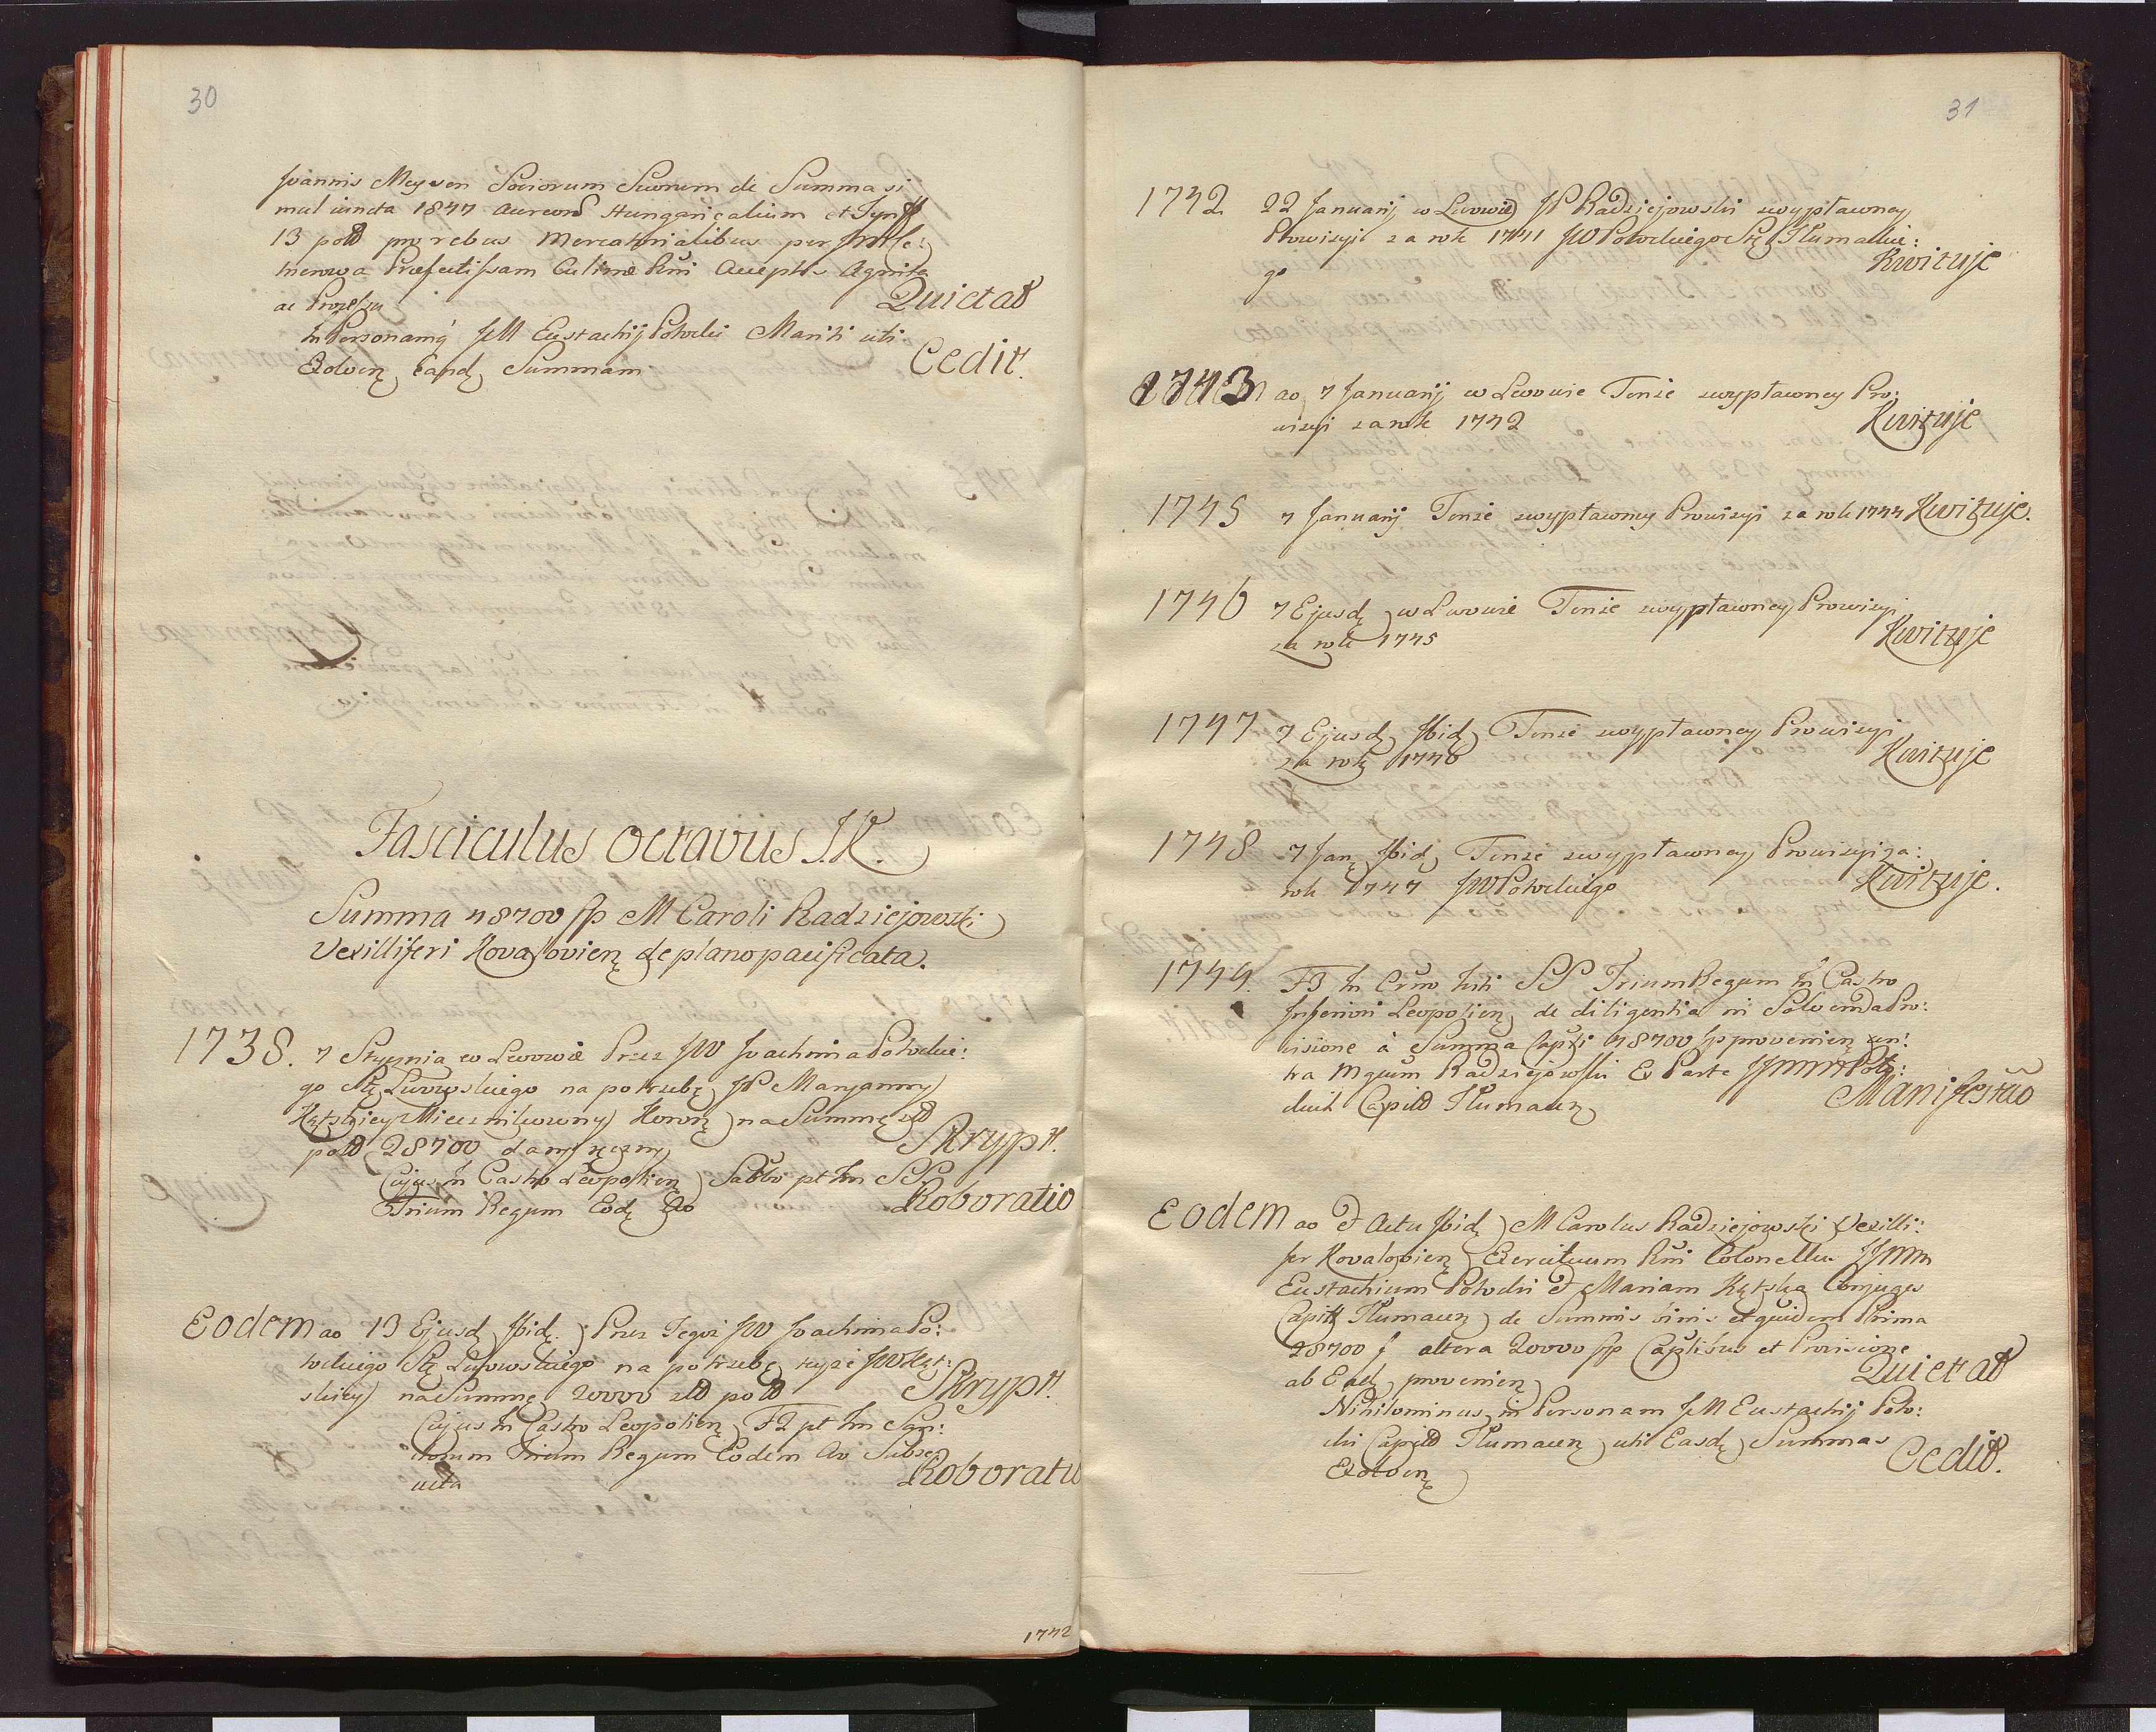 30
Joannis Meysen Sociorum Suorum de Summa si
mul iuncta 1847 Aureorũ Hungaricalium et Tynff
13 polł pro rebus Mercatorialibus per
Præfectissam Culinæ Rñi Acceptis Agnita
ac Quietat
In Personamq́ JM Eustachij Potocki Mariti uti
Exolven̨ Eand̨ Summam Cedit.
Fasciculus octavus J.K.
Summa 48700 fp M Caroli Radziejowski
Vexilliferi Kovaloviens̨ de plano pacificata.
1738. 7 Stycznia w Lwowie Przez JW Joachima Potockie:
go Stę Lwowskiego na potrzebę JP Maryanny
Kątskiey Miecznikowny Koronę na Summę zł
polł 28700 dany ręczny Skrypt.
Cujus in Castro Leopolien̨ Sabbo pt fm SS
Trium Regum Eod̨ Ao Roboratio
Eodem ao 13 Ejusd̨ Ibid̨. Przez Tegoż JW Joachima Po:
tockiego Stę Lwowskiego na potrzebę teyże JW Kąt:
skiey na Summę 20000 zł polł Skrypt.
Cujus in Castro Leopolien̨ F2 pt fm San:
ctorum Trium Regum Eodem Ao Subse
cuta Roboratio
1742
31
1742 22 Januarij w Lwowie JP Radziejowski z wypłaconey
Prowizyi za rok 1741 JW Potockiego Stę Tłumackie:
go Kwituje
1743 ao 7 Januarij w Lwowie Tenże z wypłaconey Pro:
wizyi za rok 1742 Kwituje
1745 7 Januarij Tenże z wypłaconey Prowizyi za rok 1744 Kwituje.
1746 7 Ejusd̨ w Lwowie Tenże z wypłaconey Prowizyi
za rok 1745 Kwituje
1747 7 Ejusd̨ Ibid̨ Tenże z wypłaconey Prowizyi
za rok 1746 Kwituje
1748 7 Jan̨ Ibid̨ Tenże z wypłaconey Prowizyi za:
rok 1747 JW Potockiego Kwituje.
1749. F3 In Crño festi SS Trium Regum in Castro
Inferiori Leopolien̨ de diligentia in Solvenda Pro:
visione à Summa Capłi 48700 fp provenien̨ con:
tra Mgcum Radziejowski Ex Parte JJmm Poto:
ckich Capitł Tłumacen̨ Manifestao
Eodem ao et Actu Ibid̨ M Carolus Radziejowski Vexilli:
fer Kovalovien̨ Exercituum Rñi Colonellus JJmm
Eustachium Potocki et Mariam Kątska Conjuges
Capitł Tłumacen̨ de Summis binis et quidem Prima
28700 f altera 20000 fp Capłibus et Provisione
ab Ead̨ provenien̨ Quietat
Nihilominus in Personam JM Eustachij Poto:
cki Capitł Tłumacen̨ uti Easd̨ Summas
Exolven̨ Cedit.